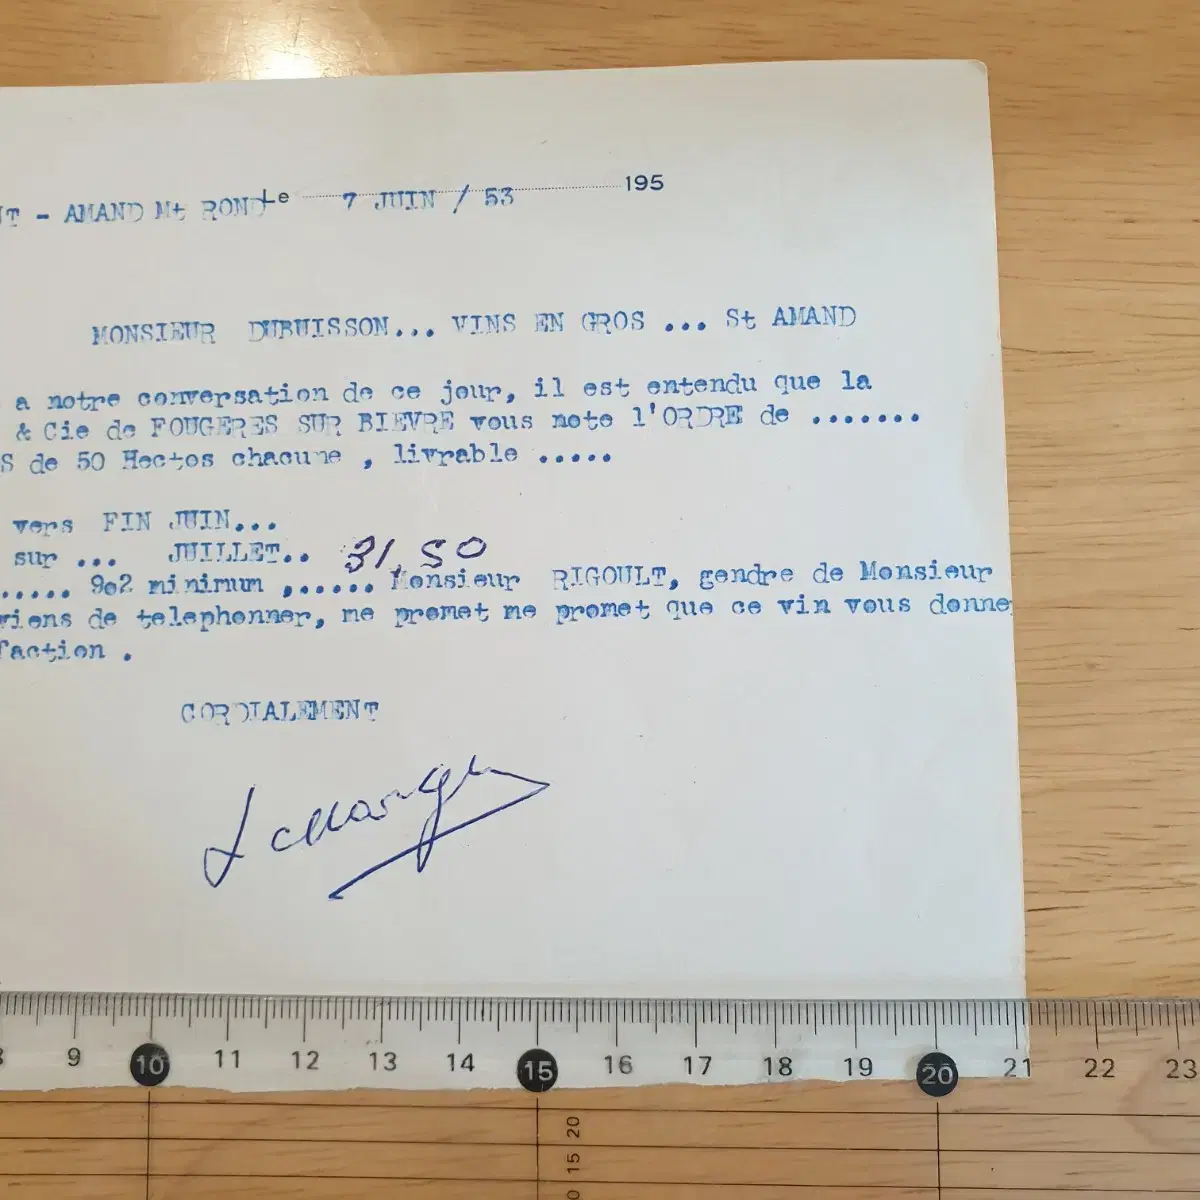 NT - AMAND Mt ROND Le 7 JUIN / 53 195
MONSIEUR DUBUISSON... VINS EN GROS ... St AMAND
a notre conversation de ce jour, il est entendu que la
& Cie de FOUGERES SUR BIEVRE vous note l'ORDRE de .......
S de 50 Hectos chacune , livrable .....
vers FIN JUIN...
sur ... JUILLET.. 31,50
..... 9e2 minimum ,...... Monsieur RIGOULT, gendre de Monsieur
viens de telephonner, me promet me promet que ce vin vous donne
faction .
CORDIALEMENT
9 10 11 12 13 14 15 16 17 18 19 20 21 22 23
20
15